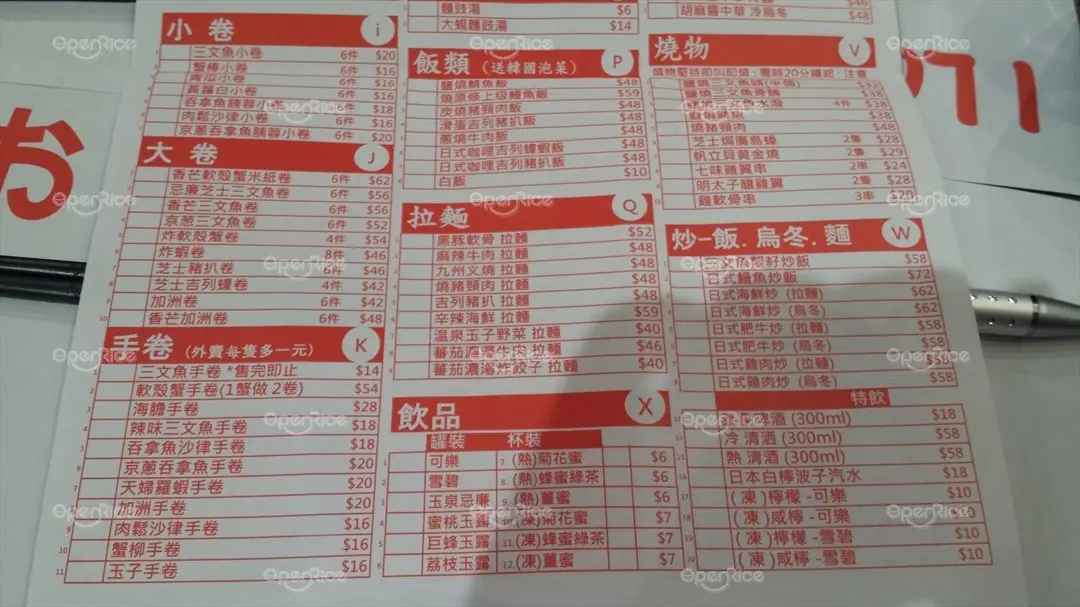 小卷 i
三文魚小卷 6件 $20
蟹棒小卷 6件 $16
青瓜小卷 6件 $16
黃蘿白小卷 6件 $16
吞拿魚腩蓉小卷 6件 $18
肉鬆沙律小卷 6件 $16
京蔥吞拿魚腩蓉小卷 6件 $20
大卷 J
香芒軟殼蟹米紙卷 6件 $62
忌廉芝士三文魚卷 6件 $56
香芒三文魚卷 6件 $56
京蔥三文魚卷 6件 $52
炸軟殼蟹卷 4件 $54
炸蝦卷 8件 $46
芝士豬扒卷 6件 $46
芝士吉列蠔卷 4件 $42
加洲卷 6件 $42
香芒加洲卷 6件 $48
手卷 (外賣每隻多一元) K
三文魚手卷 *售完即止 $14
軟殼蟹手卷(1蟹做2卷) $54
海膽手卷 $28
辣味三文魚手卷 $18
吞拿魚沙律手卷 $18
京蔥吞拿魚手卷 $20
天婦羅蝦手卷 $20
加洲手卷 $20
肉鬆沙律手卷 $16
蟹柳手卷 $16
玉子手卷 $16
麵豉湯 $6
大蜆麵豉湯 $14
飯類 (送韓國泡菜) P
鹽燒鯖魚飯 $48
燒原條上級鰻魚飯 $59
炭燒豬頸肉飯 $48
滑蛋吉列豬扒飯 $48
蔥燒牛肉飯 $48
日式咖哩吉列蠔蝦飯 $48
日式咖哩吉列豬扒飯 $48
白飯 $10
拉麵 Q
黑豚軟骨 拉麵 $52
麻辣牛肉 拉麵 $48
九州义燒 拉麵 $48
燒豬頸肉 拉麵 $48
吉列豬扒 拉麵 $48
辛辣海鮮 拉麵 $59
溫泉玉子野菜 拉麵 $40
蕃茄濃湯牛肉 拉麵 $46
蕃茄濃湯炸餃子 拉麵 $40
飲品 X
罐裝 杯裝
可樂 7. (熱)菊花蜜 $6
雪碧 8. (熱)蜂蜜綠茶 $6
玉泉忌廉 9. (熱)薑蜜 $6
蜜桃玉露 10. (凍)菊花蜜 $7
巨蜂玉露 11. (凍)蜂蜜綠茶 $7
荔枝玉露 12. (凍)薑蜜 $7
胡麻醬中華 冷烏冬 $48
燒物 V
$38
燒豬頸肉 $48
芝士焗廣島蠔 2隻 $28
帆立貝黃金燒 2隻 $29
七味雞翼串 2串 $24
明太子釀雞翼 2隻 $28
雞軟骨串 3串 $20
炒-飯.烏冬.麵 W
三文魚蟹籽炒飯 $58
日式鰻魚炒飯 $72
日式海鮮炒 (拉麵) $62
日式海鮮炒 (烏冬) $62
日式肥牛炒 (拉麵) $58
日式肥牛炒 (烏冬) $58
日式雞肉炒 (拉麵) $58
日式雞肉炒 (烏冬) $58
特飲
啤酒 (300ml) $18
冷 清酒 (300ml) $58
熱 清酒 (300ml) $58
日本白檸波子汽水 $18
(凍)檸檬 -可樂 $10
(凍)咸檸 -可樂
(凍)檸檬 -雪碧 $10
(凍)咸檸 -雪碧 $10
お
OpenRice